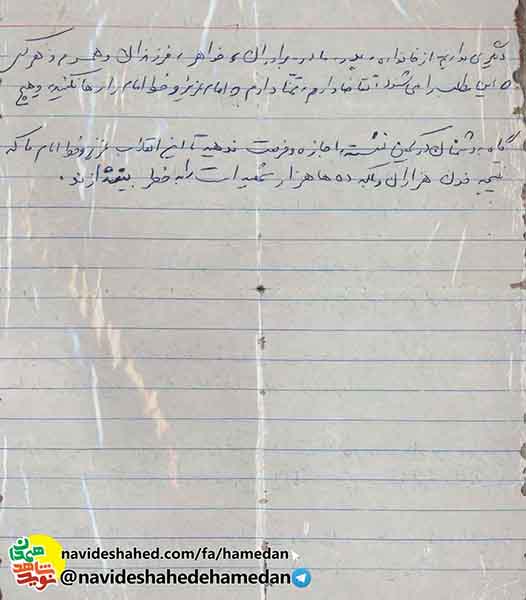 دیگری ندارم از خانواده، پدر، مادر، برادران، خواهر، فرزندان و همسرم و هر کس
که این مطلب را می‌شنود تقاضا دارم، تمنا دارم که امام عزیز و خط امام را رها نکنید و هیچ
گاه به دشمنان در کمین نشسته اجازه و فرصت ندهید تا این انقلاب عزیز و خط امام ما که
نتیجه خون هزاران بلکه ده ها هزار شهید است را به خطر بیندازند.
navideshahed.com/fa/hamedan
@navideshahedehamedan
نوید شاهد همدان